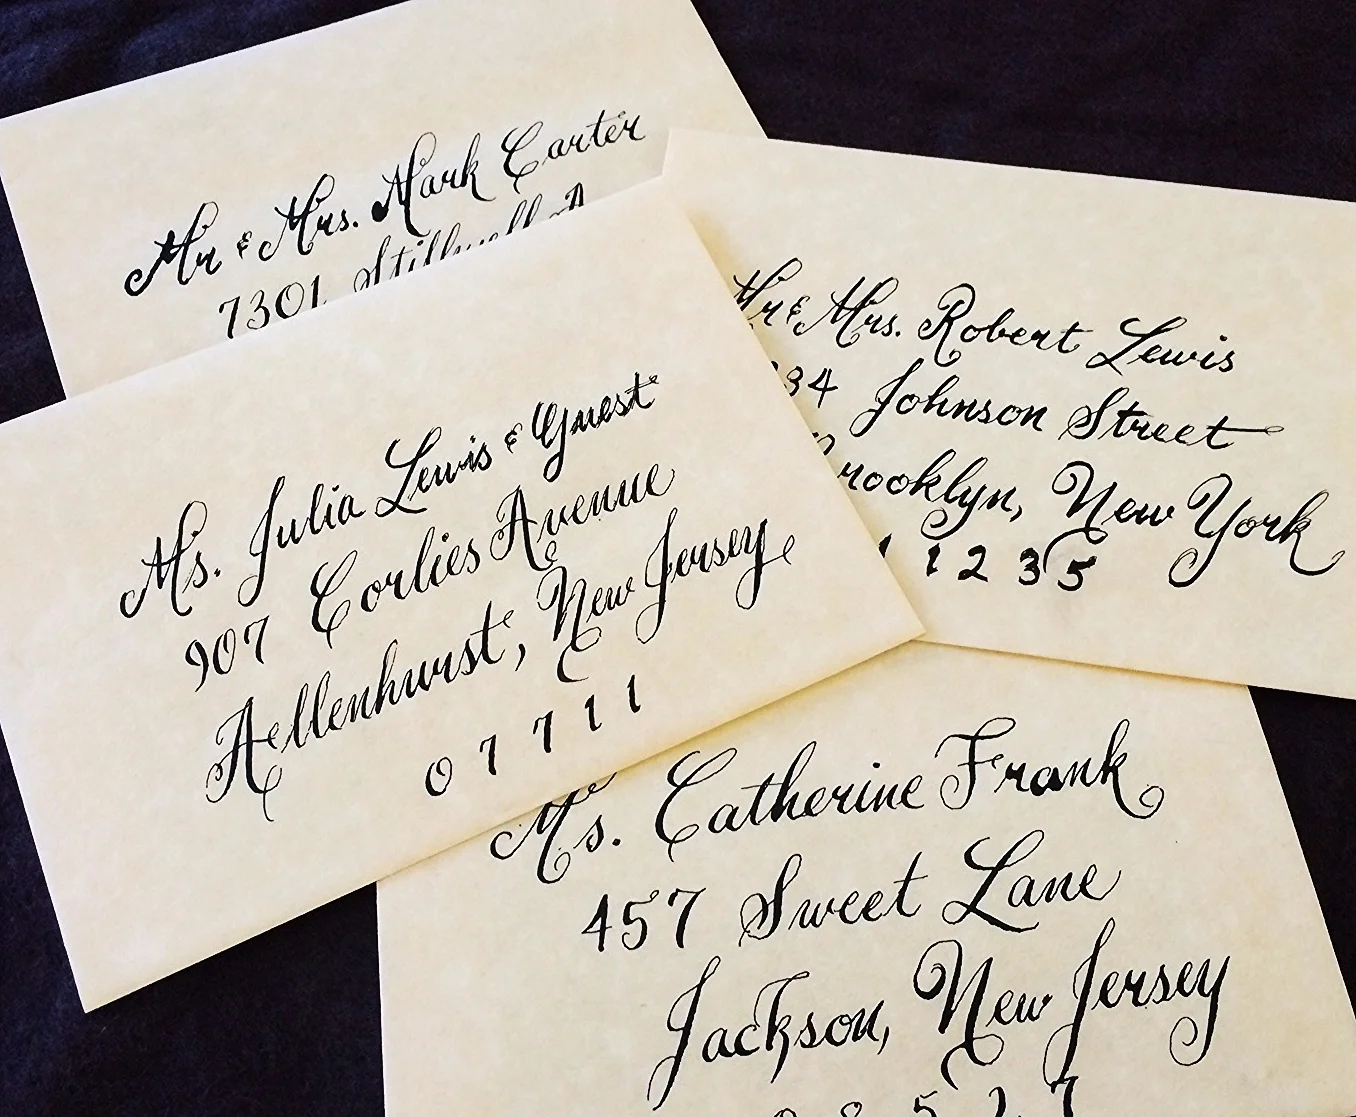 Mr & Mrs. Mark Carter
7301 Stillwell A
Ms. Julia Lewis & Guest
907 Corlies Avenue
Aellenhurst, New Jersey
07711
Mr & Mrs. Robert Lewis
34 Johnson Street
rooklyn, New York
11235
Ms. Catherine Frank
457 Sweet Lane
Jackson, New Jersey
08527